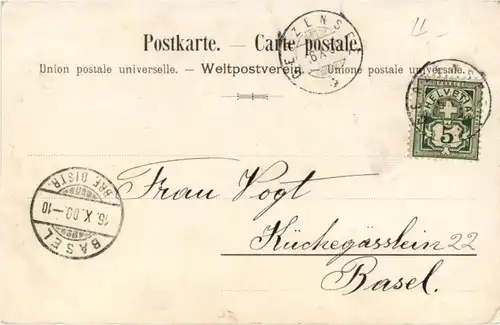 Postkarte. — Carte postale.
Union postale universelle. — Weltpostverein. — Unione postale universale.
HELVETIA
5
BRF. DISTR.
16. X. 00. – 10
BASEL
Frau Vogt
Küchegässlein 22
Basel.